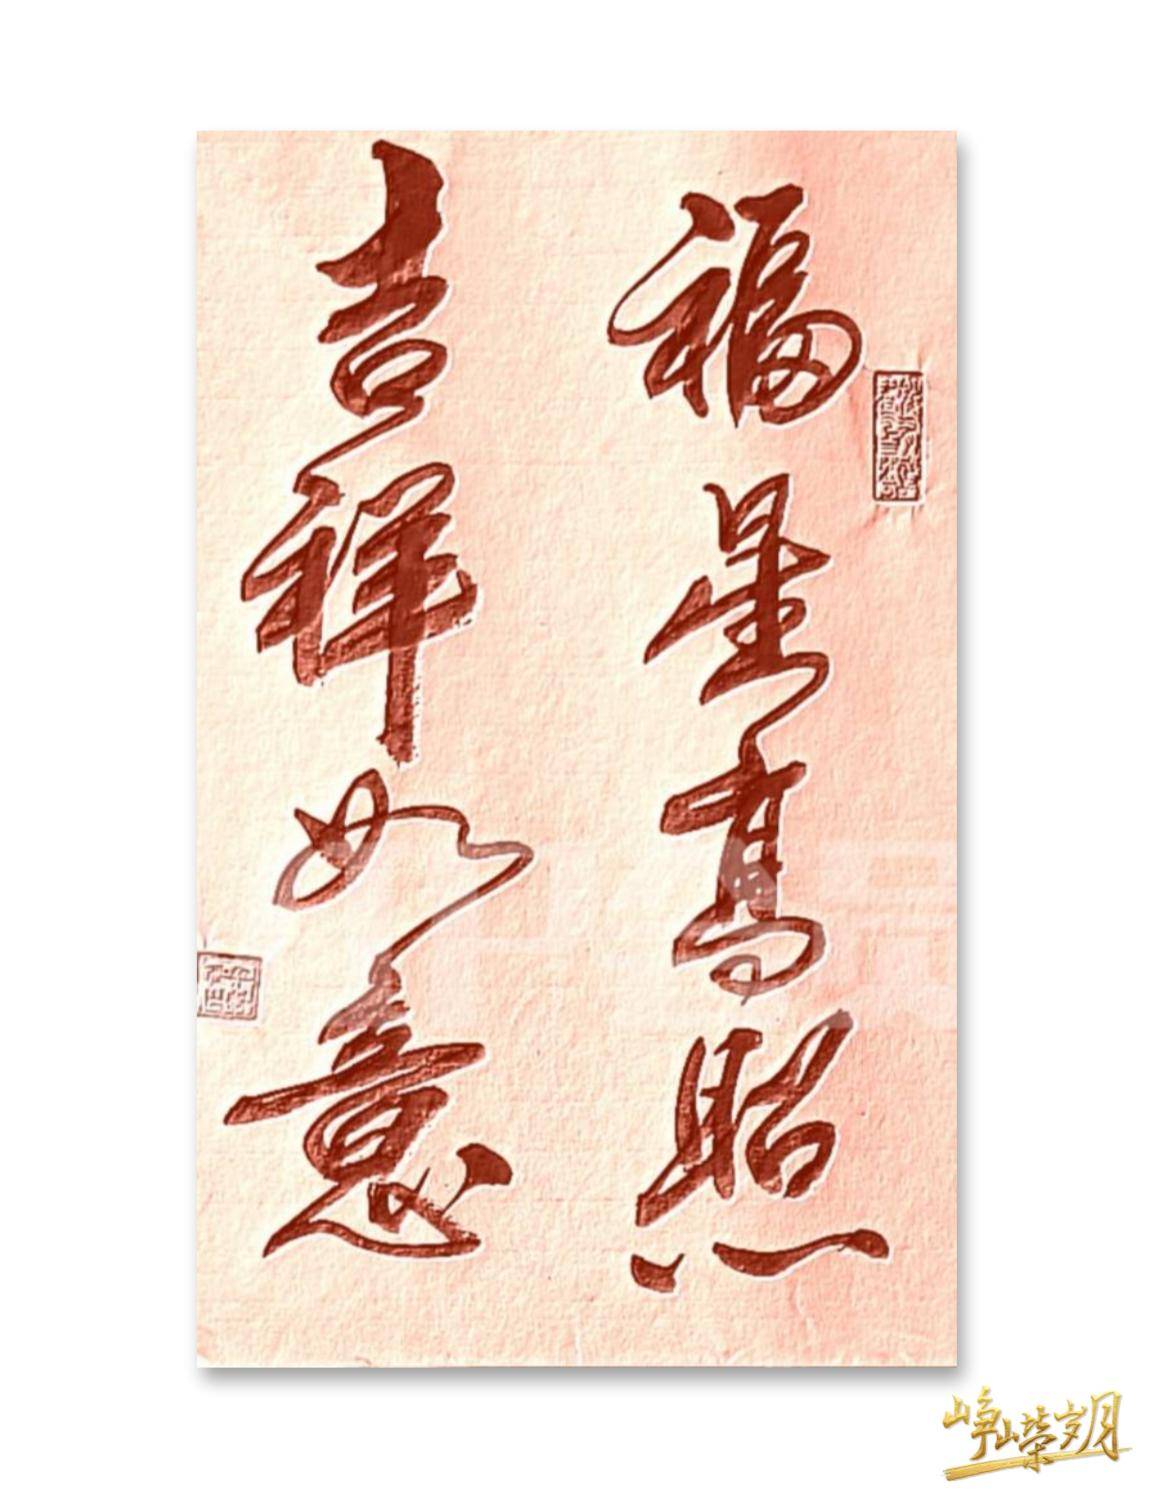 福星高照
吉祥如意
峥嵘岁月